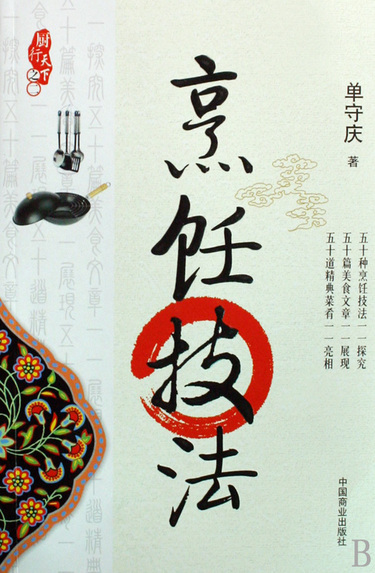 厨行天下
之二
烹饪技法
单守庆 著
五十种烹饪技法一一探究
五十篇美食文章一一展现
五十道精典菜肴一一亮相
中国商业出版社
B